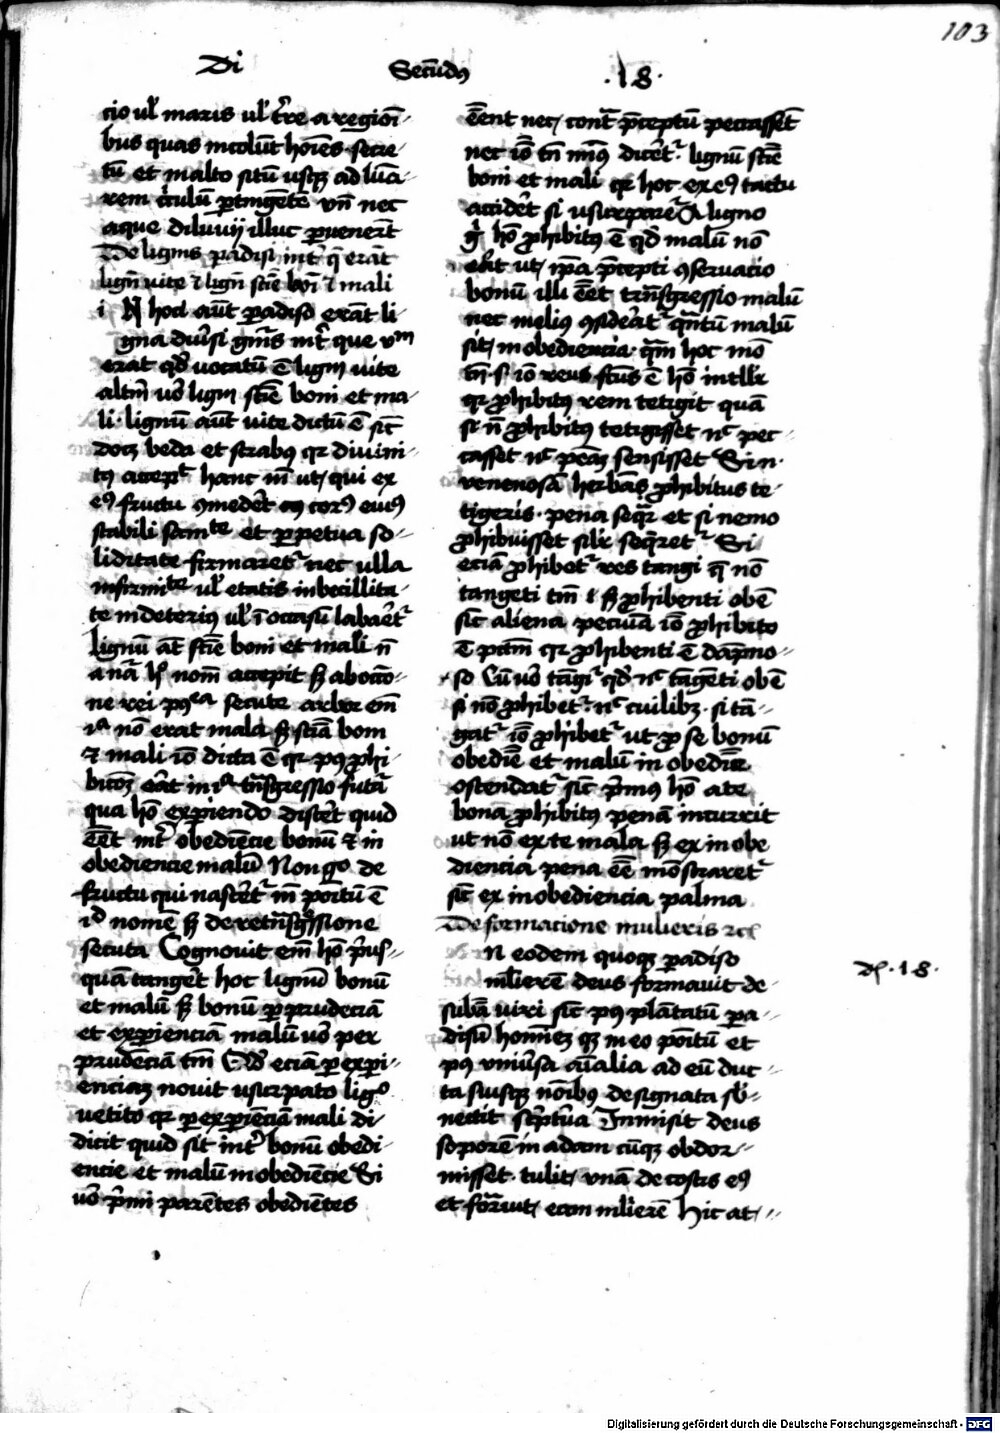 103
Di Secūdꝰ .18.
cio ul maris ul t're a regiōi
bus quas incolūt hoīes secre
tū et in alto sitū usqꝫ ad lūa
rem c'culū ꝑtingētē vn̄ nec
aque diluvij illuc ꝑuener̄t
De lignis padisi int' q̄ erāt
lignū vite ⁊ lignū sciē boī ⁊ mali
i N hoc aūt ꝑadiso erāt li
gna diu'si gn̄is int' que vnm
erat qd' vocatū ē lignū vite
altm̄ uo' lignū sciē boni et ma
li. lignū aūt vite dictū ē sic̄
docꝫ beda et strabꝰ qr diuini
tꝰ accepit hanc im̄ ut qui ex
eꝰ fructu ꝯmeder̄t cꝰ corꝰ eiuꝰ
stabili sanite et ꝑpetua so
liditate firmaretr nec ulla
infirmite ul etatis inbecillita
te in deteriꝰ ul ī occasū labar̄etr
lignū āt sciē boni et mali nō
a nā h' nom̄ accepit sꝫ ab occō
ne rei pꝰea secute arbor em̄
ia nō erat mala sꝫ sciā boni
⁊ mali iō dicta ē qr pꝰ ꝓhi
bicōꝫ erāt in ia tn̄sgressio futa
qua hō expiendo disce't quid
eēt int' obediēcie bonū ⁊ in
obediencie malū Non go de
fructu qui nascer̄etr im̄ poitū ē
id nomē sꝫ de re tn̄sgssione
secuta Cognouit em̄ hō p'us
quā tanger̄t hoc lignū bonū
et malū sꝫ bonū ꝑ prudēciā
et expienciā malū uo' per
prudēciā tm̄ Sꝫ eciā ꝑ expi
enciaꝫ novit usurpato ligo
uetito qr ꝑ expiēciam mali di
dicit quid sit int' bonū obedi
encie et malū inobediēcie Si
uo' p'mi parētes obediētes
eēnt nec cont' p̄ceptū peccassēt
nec iō tn̄ minꝰ dicer̄etr lignū sciē
boni et mali qr hoc ex eꝰ tactu
accider̄t si usurparetr A ligno
g' hō ꝓhibitꝰ ē qd' malū nō
erat ut ip̄a p̄cepti ꝯseruacio
bonū illi eēt trn̄sgressio malū
nec meliꝰ ꝯsideratr qn̄tū malū
sit inobediencia qm̄ hoc mō
tn̄ si iō reus fcūs ē hō intllr
qr ꝓhibitꝰ rem tetigit quā
si nō ꝓhibitꝰ tetigisset nc pec
casset nc penāꝫ sensisset Si n.
venenosā herbāꝫ ꝓhibitus te
tigeris pena seqr et si nemo
ꝓhibuisset silr seqretr Si
eciā ꝓhibetr res tangi q̄ nō
tangēti tm̄ ⁊ sꝫ ꝓhibenti obē
sic̄ aliena pecuīa iō ꝓhibito
ē pctm̄ qr ꝓhibenti ē dāpno
so Cū uo' tāgir qd' nc tāgēti obē
si nō ꝓhibetr nc cuilibꝫ si tā
gatr iō ꝓhibetr ut ꝑ se bonū
obediē et malū inobediē
ostendatr sic̄ p'mꝰ hō a re
bona ꝓhibitꝰ penā incurrit
ut nō ex re mala sꝫ ex inobe
diencia pena eē mōstraretr
sic̄ ex inobediencia palma
De formacione mulieris
N eodem quoqꝫ ꝑadiso
mlierē deus formauit de
subā viri sic̄ pꝰ plātatū ꝑa
disū hominēꝫ qꝫ in eo poitū et
pꝰ vniu'sa aīalia ad eū duc
ta suisqꝫ nōibꝰ designata sb'
nectit sc'ptūa Inmisit deus
soporē in adam cūqꝫ obdor
misset tulit vnā de costis eꝰ
et fōrauit eam mlierē Hic at
di .18.
Digitalisierung gefördert durch die Deutsche Forschungsgemeinschaft - DFG